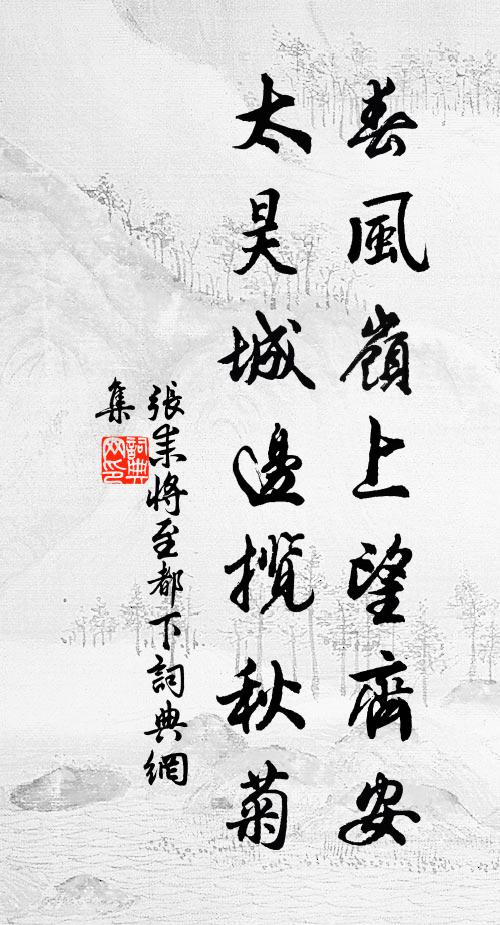 春風嶺上望齊安
太昊城邊攬秋菊
張耒將至都下詞典網
集
詞典网印